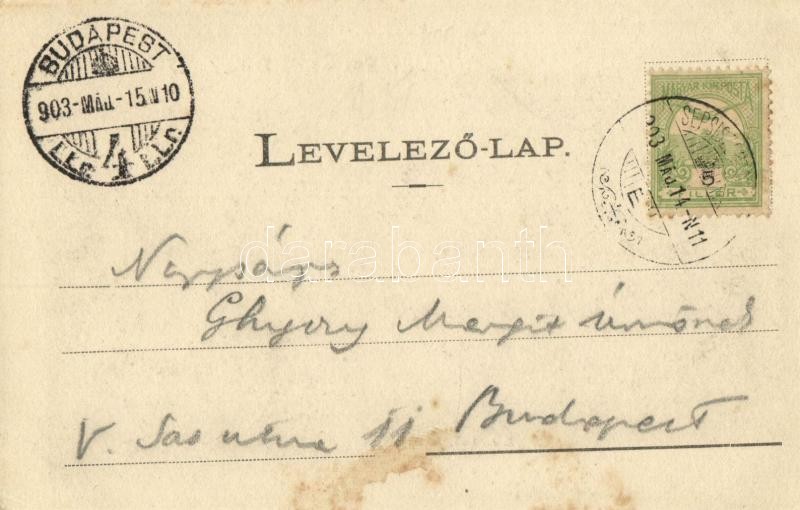 BUDAPEST
903-MÁJ.-15.N10
4
MAGYAR KIR. POSTA
SEPSISZ
5
903 MÁJ. 14-N11
LEVELEZŐ-LAP.
darabanth
Nagyságos
Ghyczy Margit úrnőnek
V. Sas utca 11 Budapest